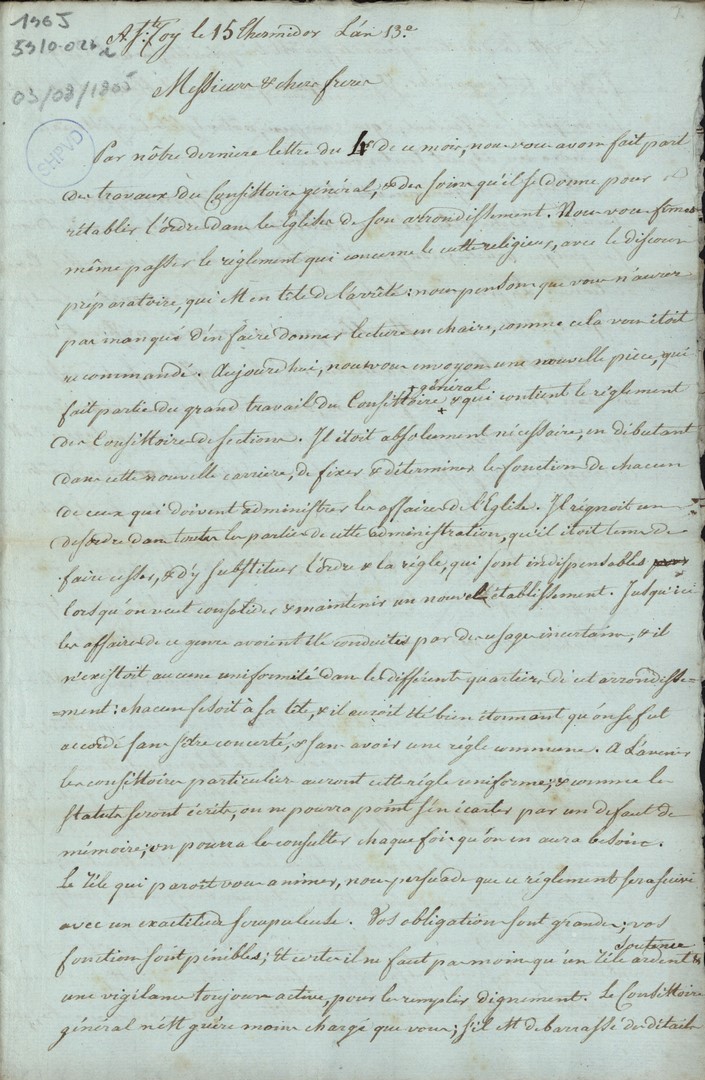 1965
5910-026
03/08/1805
SHPVD
A Ste. Foy le 15 Thermidor L'án 13e
Messieurs & chers freres
Par nôtre derniere lettre du 4 de ce mois, nous vous avons fait part
des travaux du Consistoire général, & des soins qu'il se donne pour
rétablir l'ordre dans les Églises de son arrondissement. Nous vous fimes
même passer le réglement qui concerne le culte religieux, avec le discours
préparatoire, qui est en tête de l'arrêté: nous pensons que vous n'aurez
pas manqué d'en faire donner lecture en chaire, comme cela vous étoit
recommandé. Aujourd'hui, nous vous envoyons une nouvelle piéce, qui
fait partie du grand travail du Consistoire général & qui contient le réglement
des Consistoires de sections. Il étoit absolument nécessaire, en débutant
dans cette nouvelle carriere, de fixer & déterminer les fonctions de chacun
de ceux qui doivent administrer les affaires de l'Eglise. Il régnoit un
desordre dans toutes les parties de cette administration, qu'il étoit tems de
faire cesser, & d'y substituer l'ordre & la régle, qui sont indispensables
lorsqu'on veut consolider & maintenir un nouvel établissement. Jusqu'ici
les affaires de ce genre avoient été conduites par des usages incertains, & il
n'existoit aucune uniformité dans les différents quartiers de cet arrondisse=
=ment: chacun fesoit à sa tête, & il auroit été bien étonnant qu'on se fut
accordé sans s'être concerté, & sans avoir une régle commune. A L'avenir
les consistoires particuliers auront cette régle uniforme; & comme les
statuts seront écrits, on ne pourra point s'en écarter par un defaut de
mémoire; on pourra les consulter chaque fois qu'on en aura besoin.
Le Zéle qui paroît vous animer, nous persuade que ce réglement sera suivi
avec un exactitude scrupuleuse. Vos obligations sont grandes; vos
fonctions sont pénibles; Et certes il ne faut pas moins qu'un Zéle ardent soutenu &
une vigilance toujours active, pour les remplir dignement. Le Consistoire
général n'est guére moins chargé que vous; s'il est debarrassé des détails